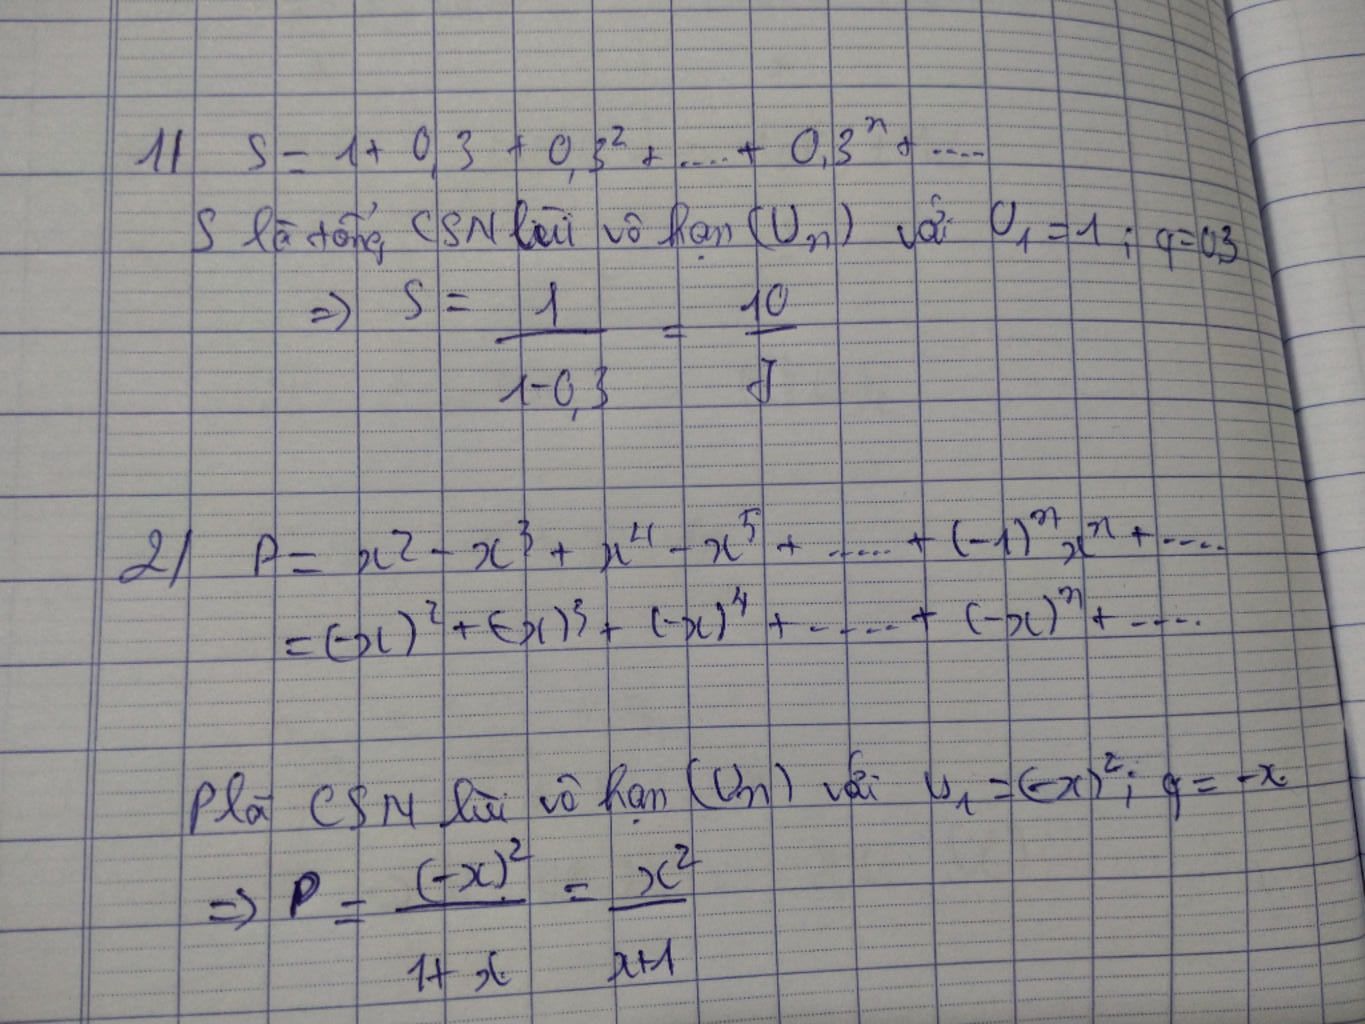 1/ S = 1 + 0,3 + 0,3² + .... + 0,3ⁿ + ....
S là tổng CSN lùi vô hạn (Uₙ) với U₁ = 1 ; q = 0,3
=> S = 1/(1-0,3) = 10/7
2/ P = x² - x³ + x⁴ - x⁵ + ..... + (-1)ⁿ xⁿ + ....
= (-x)² + (-x)³ + (-x)⁴ + ..... + (-x)ⁿ + ....
P là CSN lùi vô hạn (Uₙ) với U₁ = (-x)² ; q = -x
=> P = (-x)²/(1+x) = x²/(x+1)